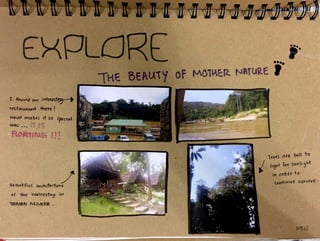 EXPLORE
THE BEAUTY OF MOTHER NATURE
I found an interesting
restaurant there!
What makes it so special
was ... IT IS
FLOATING!!!
Beautiful architecture
of the homestay in
TAMAN NEGARA.
Trees are tall to
fight for sunlight
in order to
continue survive.